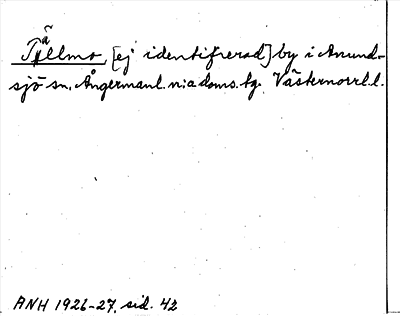 Tällmo, [ej identifierad] by i Anund-
sjö sn, Ångermanl. n:a doms.bg. Västernorrl.l.
ANH 1926-27, sid. 42